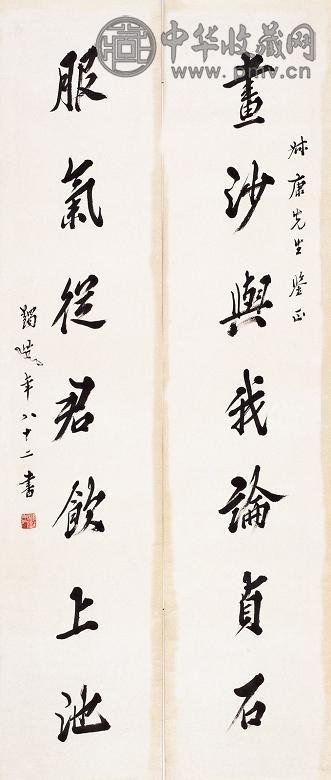 中华收藏网
www.pmv.cn
叔康先生鑒正
畫沙與我論貞石
服氣從君飲上池
蠲叟年八十二書